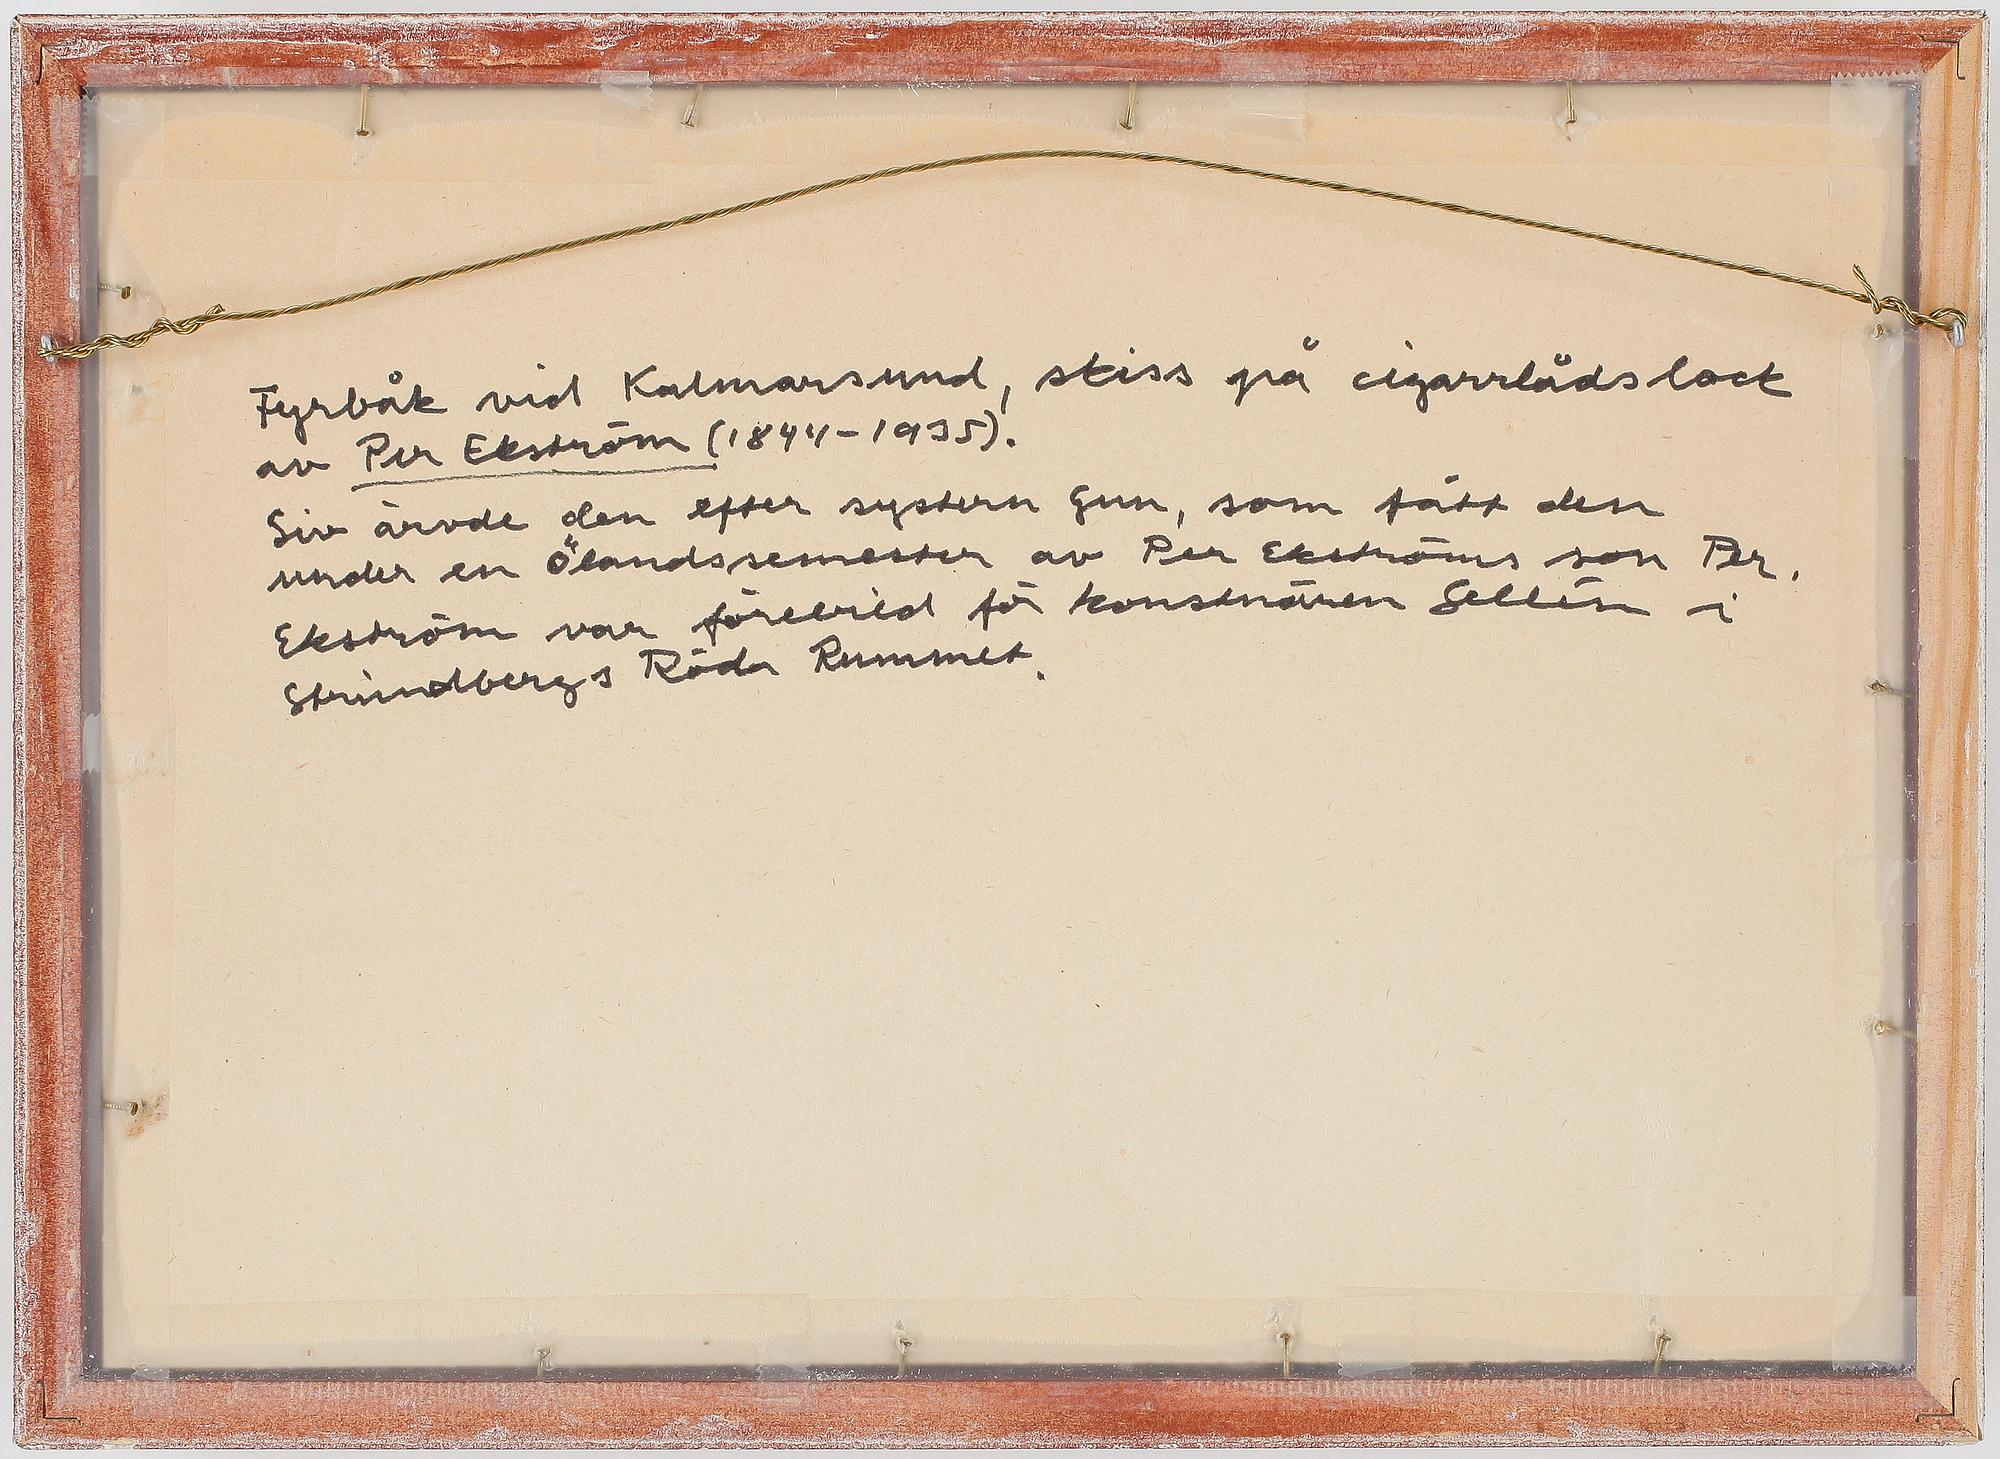 Fyrbåk vid Kalmarsund, skiss på cigarrlådslock
av Per Ekström (1844-1935).
Siv ärvde den efter systern Gun, som fått den
under en Ölandssemester av Per Ekströms son Per.
Ekström var förebild för konstnären Sellén i
Strindbergs Röda Rummet.